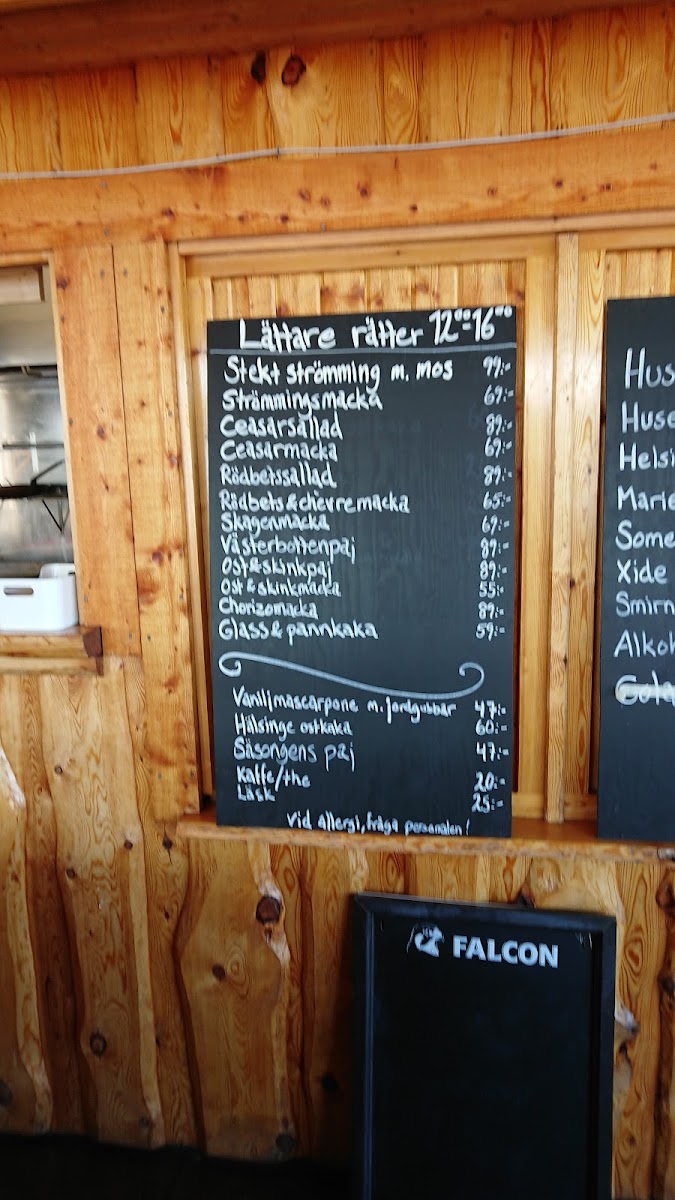 Lättare rätter 12⁰⁰-16⁰⁰
Stekt strömming m. mos 99:-
Strömmingsmacka 69:-
Ceasarsallad 89:-
Ceasarmacka 69:-
Rödbetssallad 89:-
Rödbets & chèvremacka 65:-
Skagenmacka 69:-
Västerbottenpaj 89:-
Ost & skinkpaj 89:-
Ost & skinkmacka 55:-
Chorizomacka 89:-
Glass & pannkaka 59:-
Vaniljmascarpone m. jordgubbar 47:-
Hälsinge ostkaka 60:-
Säsongens paj 47:-
Kaffe/the 20:-
Läsk 25:-
Vid allergi, fråga personalen!
Hus
Huse
Helsi
Marie
Some
Xide
Smirn
Alkoh
FALCON